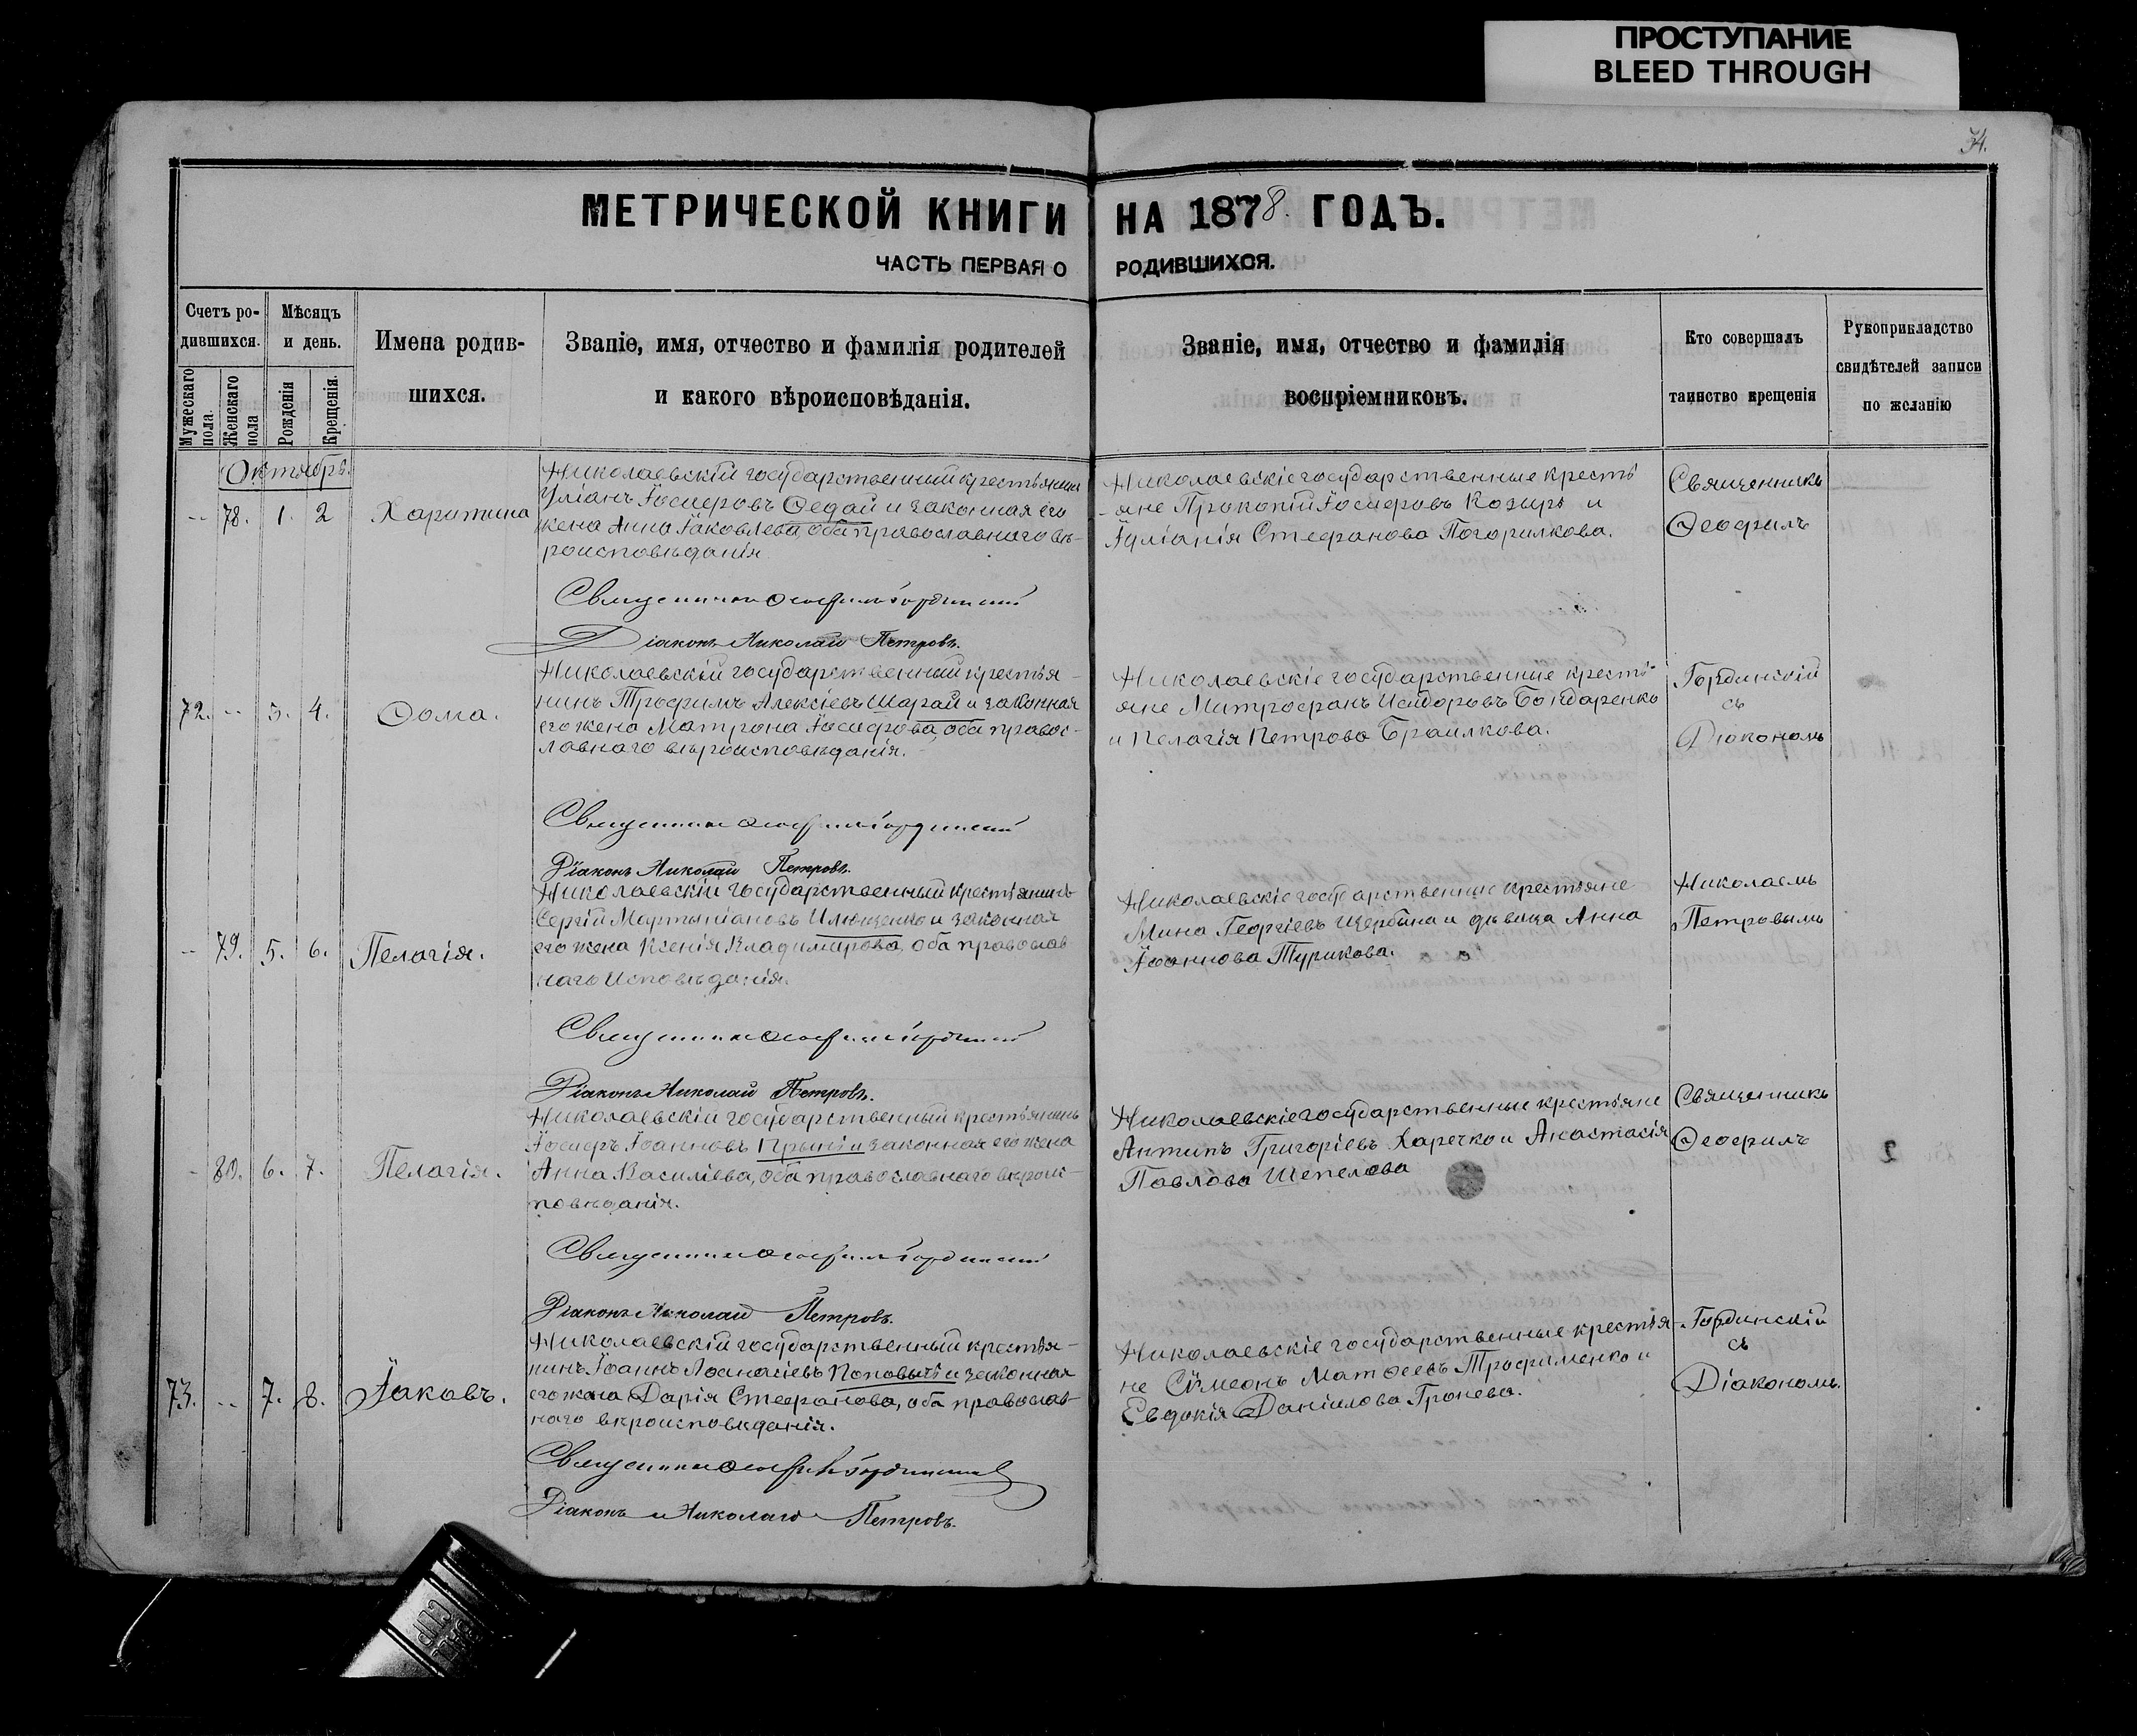 ПРОСТУПАНИЕ
BLEED THROUGH
34.
МЕТРИЧЕСКОЙ КНИГИ НА 1878. ГОДЪ.
ЧАСТЬ ПЕРВАЯ О РОДИВШИХСЯ.
Счетъ ро-
дившихся.
Мужескаго пола.
Женскаго пола
Мѣсяцъ
и день.
Рожденія
Крещенія.
Имена родив-
шихся.
Званіе, имя, отчество и фамилія родителей
и какого вѣроисповѣданія.
Званіе, имя, отчество и фамилія
воспріемниковъ.
Кто совершалъ
таинство крещенія
Рукоприкладство
свидѣтелей записи
по желанію
Октябрь.
-- 78. 1. 2 Харитина
Николаевскій государственный крестьянинъ
Уліанъ Іосифовъ Ѳедай и законная его
жена Анна Іаковлева, оба православнаго вѣ-
роисповѣданія.
Николаевскіе государственные кресть
-яне Прокопій Іосифовъ Козырь и
Іуліанія Стефанова Погорилкова.
Священникъ
Ѳеофилъ
Священникъ Ѳеофилъ Гординскій
Діаконъ Николай Петровъ.
72. -- 3. 4. Ѳома.
Николаевскій государственный крестья-
нинъ Трофимъ Алексіевъ Шарай и законная
его жена Матрона Іосифова, оба правос-
лавнаго вѣроисповѣданія.
Николаевскіе государственные кресть-
яне Митрофанъ Исидоровъ Бондаренко
и Пелагія Петрова Браилкова.
Гординскій
съ
Діакономъ
Священникъ Ѳеофилъ Гординскій
Діаконъ Николай Петровъ.
-- 79. 5. 6. Пелагія.
Николаевскій государственный крестьянинъ
Сергій Мартиніановъ Илющенко и законная
его жена Ксенія Владимирова, оба православ
наго исповѣданія.
Николаевскіе государственные крестьяне
Мина Георгіевъ Щербина и дѣвица Анна
Іоаннова Турикова.
Николаемъ
Петровымъ
Священникъ Ѳеофилъ Гординскій
Діаконъ Николай Петровъ.
- 80. 6. 7. Пелагія.
Николаевскій государственный крестьянинъ
Іосифъ Іоанновъ и законная его жена
Анна Василіева, оба православнаго вѣроис-
повѣданія.
Николаевскіе государственные крестьяне
Антипъ Григоріевъ Харечко и Анастасія
Павлова Шепелева
Священникъ
Ѳеофилъ
Священникъ Ѳеофилъ Гординскій
Діаконъ Николай Петровъ.
73. -- 7. 8. Іаковъ.
Николаевскій государственный крестья-
нинъ Іоаннъ Аѳанасіевъ и законная
его жена Дарія Стефанова, оба православ-
наго вѣроисповѣданія.
Николаевскіе государственные крестья-
не Сѵмеонъ Матѳеевъ Трофименко и
Евдокія Даніилова Гронева.
Гординскій
съ
Діакономъ.
Священникъ Ѳеофилъ Гординскій
Діаконъ Николай Петровъ.